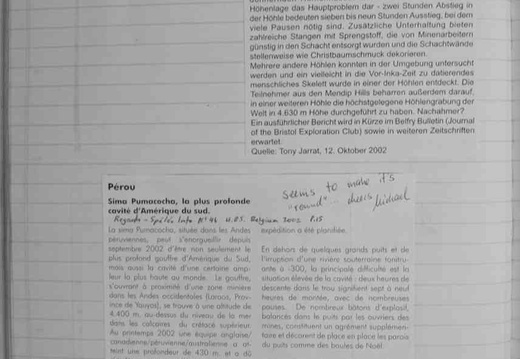 Höhenlage das Hauptproblem dar - zwei Stunden Abstieg in
der Höhle bedeuten sieben bis neun Stunden Ausstieg, bei dem
viele Pausen nötig sind. Zusätzliche Unterhaltung bieten
zahlreiche Stangen mit Sprengstoff, die von Minenarbeitern
günstig in den Schacht entsorgt wurden und die Schachtwände
stellenweise wie Christbaumschmuck dekorieren.
Mehrere andere Höhlen konnten in der Umgebung untersucht
werden und ein vielleicht in die Vor-Inka-Zeit zu datierendes
menschliches Skelett wurde in einer der Höhlen entdeckt. Die
Teilnehmer aus den Mendip Hills beharren außerdem darauf,
in einer weiteren Höhle die höchstgelegene Höhlengrabung der
Welt in 4.630 m Höhe durchgeführt zu haben. Nachahmer?
Ein ausführlicher Bericht wird in Kürze im Belfry Bulletin (Journal
of the Bristol Exploration Club) sowie in weiteren Zeitschriften
erwartet.
Quelle: Tony Jarrat, 12. Oktober 2002
Pérou
Sima Pumacocha, la plus profonde
cavité d'Amérique du sud.
Seems to make its
"round" - cheers Michael
Regards - Spéléo Info N° U.B.S. Belgium 2002 P.15
La sima Pumacocha, située dans les Andes
péruviennes, peut s'enorgueillir depuis
septembre 2002 d'être non seulement le
plus profond gouffre d'Amérique du Sud,
mais aussi la cavité d'une certaine amp-
leur la plus haute au monde. Le gouffre,
s'ouvrant à proximité d'une zone minière
dans les Andes occidentales (Laraos, Prov-
ince de Yauyos), se trouve à une altitude de
4.400 m. au-dessus du niveau de la mer
dans les calcaires du crétacé supérieur.
Au printemps 2002 une équipe anglaise/
canadienne/péruvienne/australienne a at-
teint une profondeur de 430 m. et a dû
expédition a été planifiée.
En dehors de quelques grands puits et de
l'irruption d'une rivière souterraine tonitru-
ante à -300, la principale difficulté est la
situation élevée de la cavité : deux heures de
descente dans le trou signifient sept à neuf
heures de montée, avec de nombreuses
pauses. De nombreux bâtons d'explosif,
balancés dans le puits par les ouvriers des
mines, constituent un agrément supplémen-
taire et décorent de place en place les parois
du puits comme des boules de Noël.